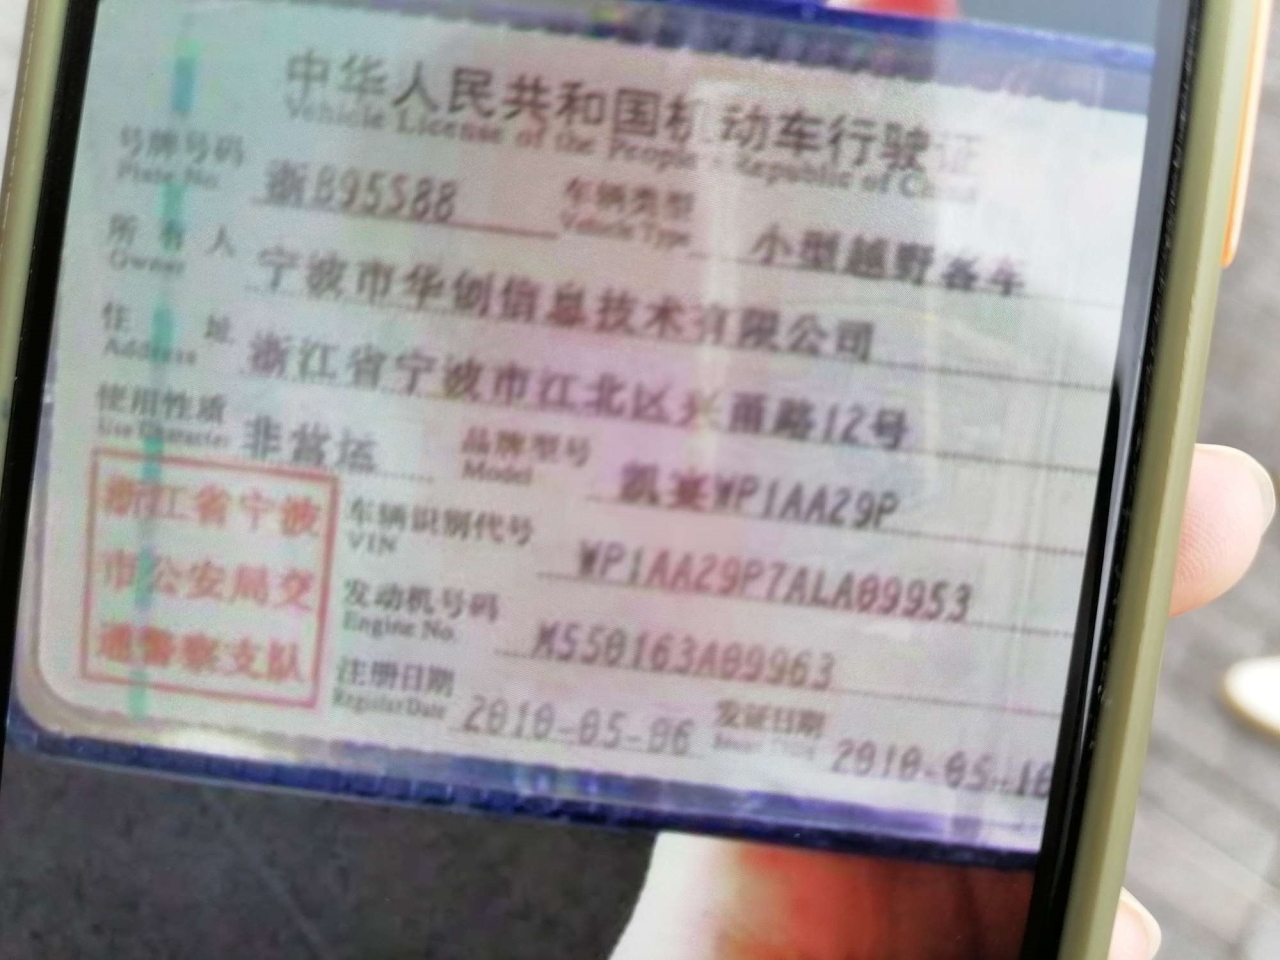 中华人民共和国机动车行驶证
Vehicle License of the People's Republic of China
号牌号码 Plate No. 浙B95S88 车辆类型 Vehicle Type 小型越野客车
所有人 Owner 宁波市华创信息技术有限公司
住址 Address 浙江省宁波市江北区兴甬路12号
使用性质 Use Character 非营运 品牌型号 Model 凯宴WP1AA29P
车辆识别代号 VIN WP1AA29P7ALA09953
发动机号码 Engine No. M550163A09963
注册日期 Register Date 2010-05-06 发证日期 Issue Date 2010-05-10
浙江省宁波
市公安局交
通警察支队